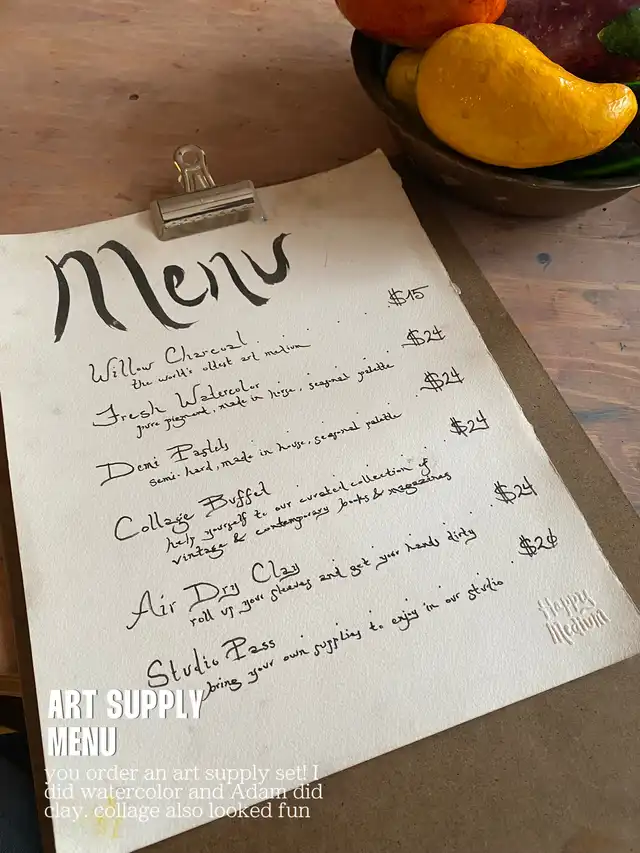 Menu
Willow Charcoal $15
the world's oldest art medium
Fresh Watercolor $24
pure pigment, made in house, seasonal palette
Demi Pastels $24
semi-hard, made in house, seasonal palette
Collage Buffet $24
help yourself to our curated collection of
vintage & contemporary books & magazines
Air Dry Clay $24
roll up your sleeves and get your hands dirty
Studio Pass
bring your own supplies to enjoy in our studio
Happy
Medium
ART SUPPLY
MENU
you order an art supply set! I
did watercolor and Adam did
clay. collage also looked fun